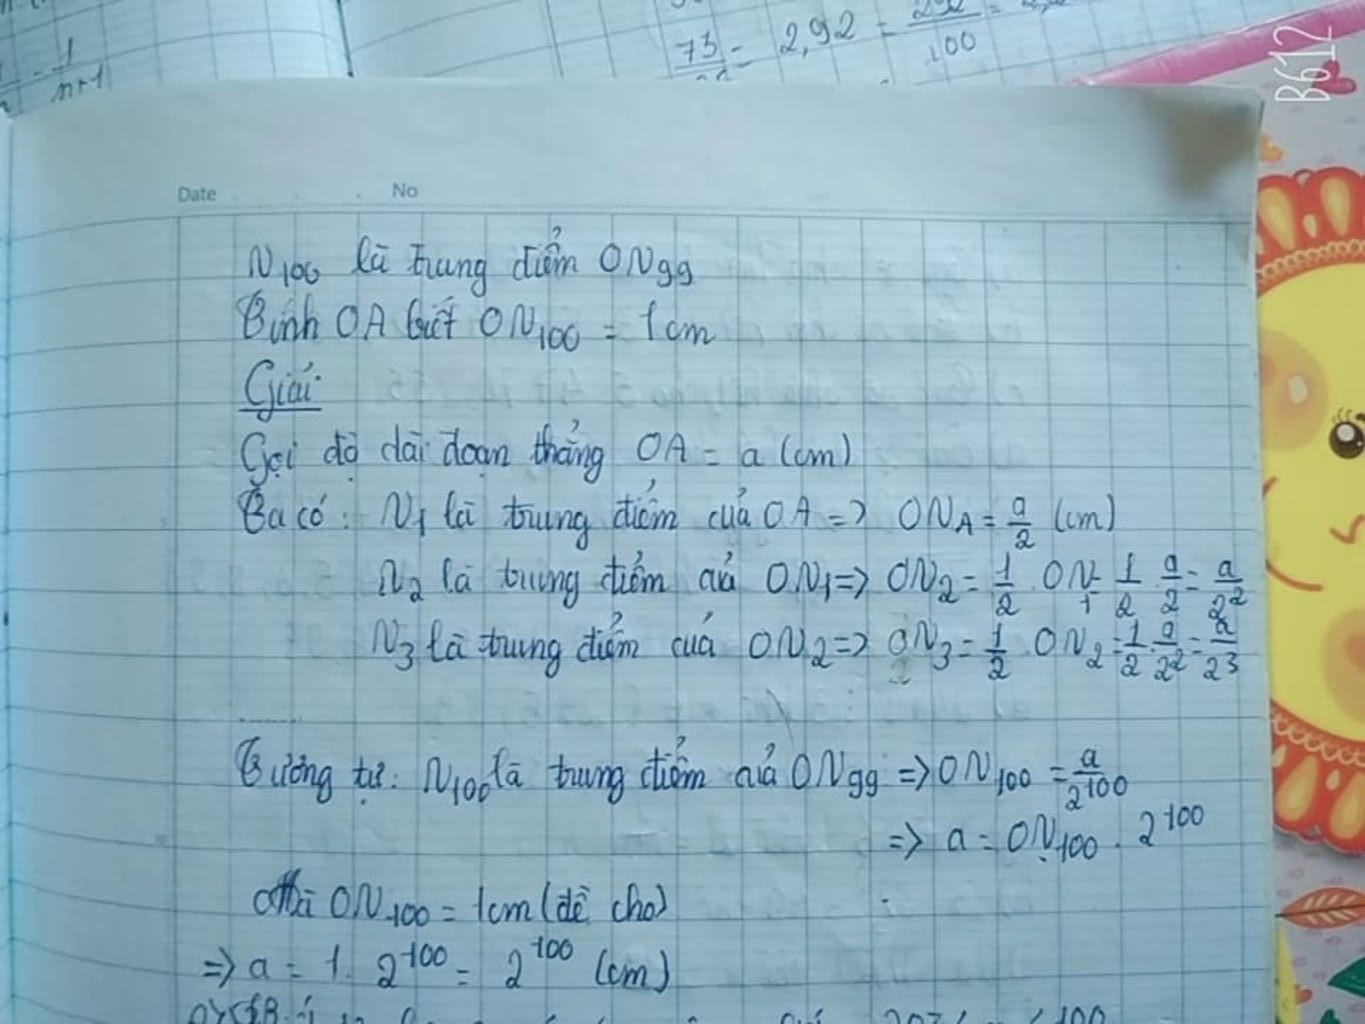 1
n+1
73 = 2,92 = 292 =
100
B612
Date No
N100 là trung điểm ON99
Tính OA biết ON100 = 1cm
Giải:
Gọi độ dài đoạn thẳng OA = a (cm)
Ta có: N1 là trung điểm của OA => ONA = a/2 (cm)
N2 là trung điểm của ON1 => ON2 = 1/2 . ON1 = 1/2 . a/2 = a/2^2
N3 là trung điểm của ON2 => ON3 = 1/2 . ON2 = 1/2 . a/2^2 = a/2^3
..........
Tương tự: N100 là trung điểm của ON99 => ON100 = a/2^100
=> a = ON100 . 2^100
Mà ON100 = 1cm (đề cho)
=> a = 1 . 2^100 = 2^100 (cm)